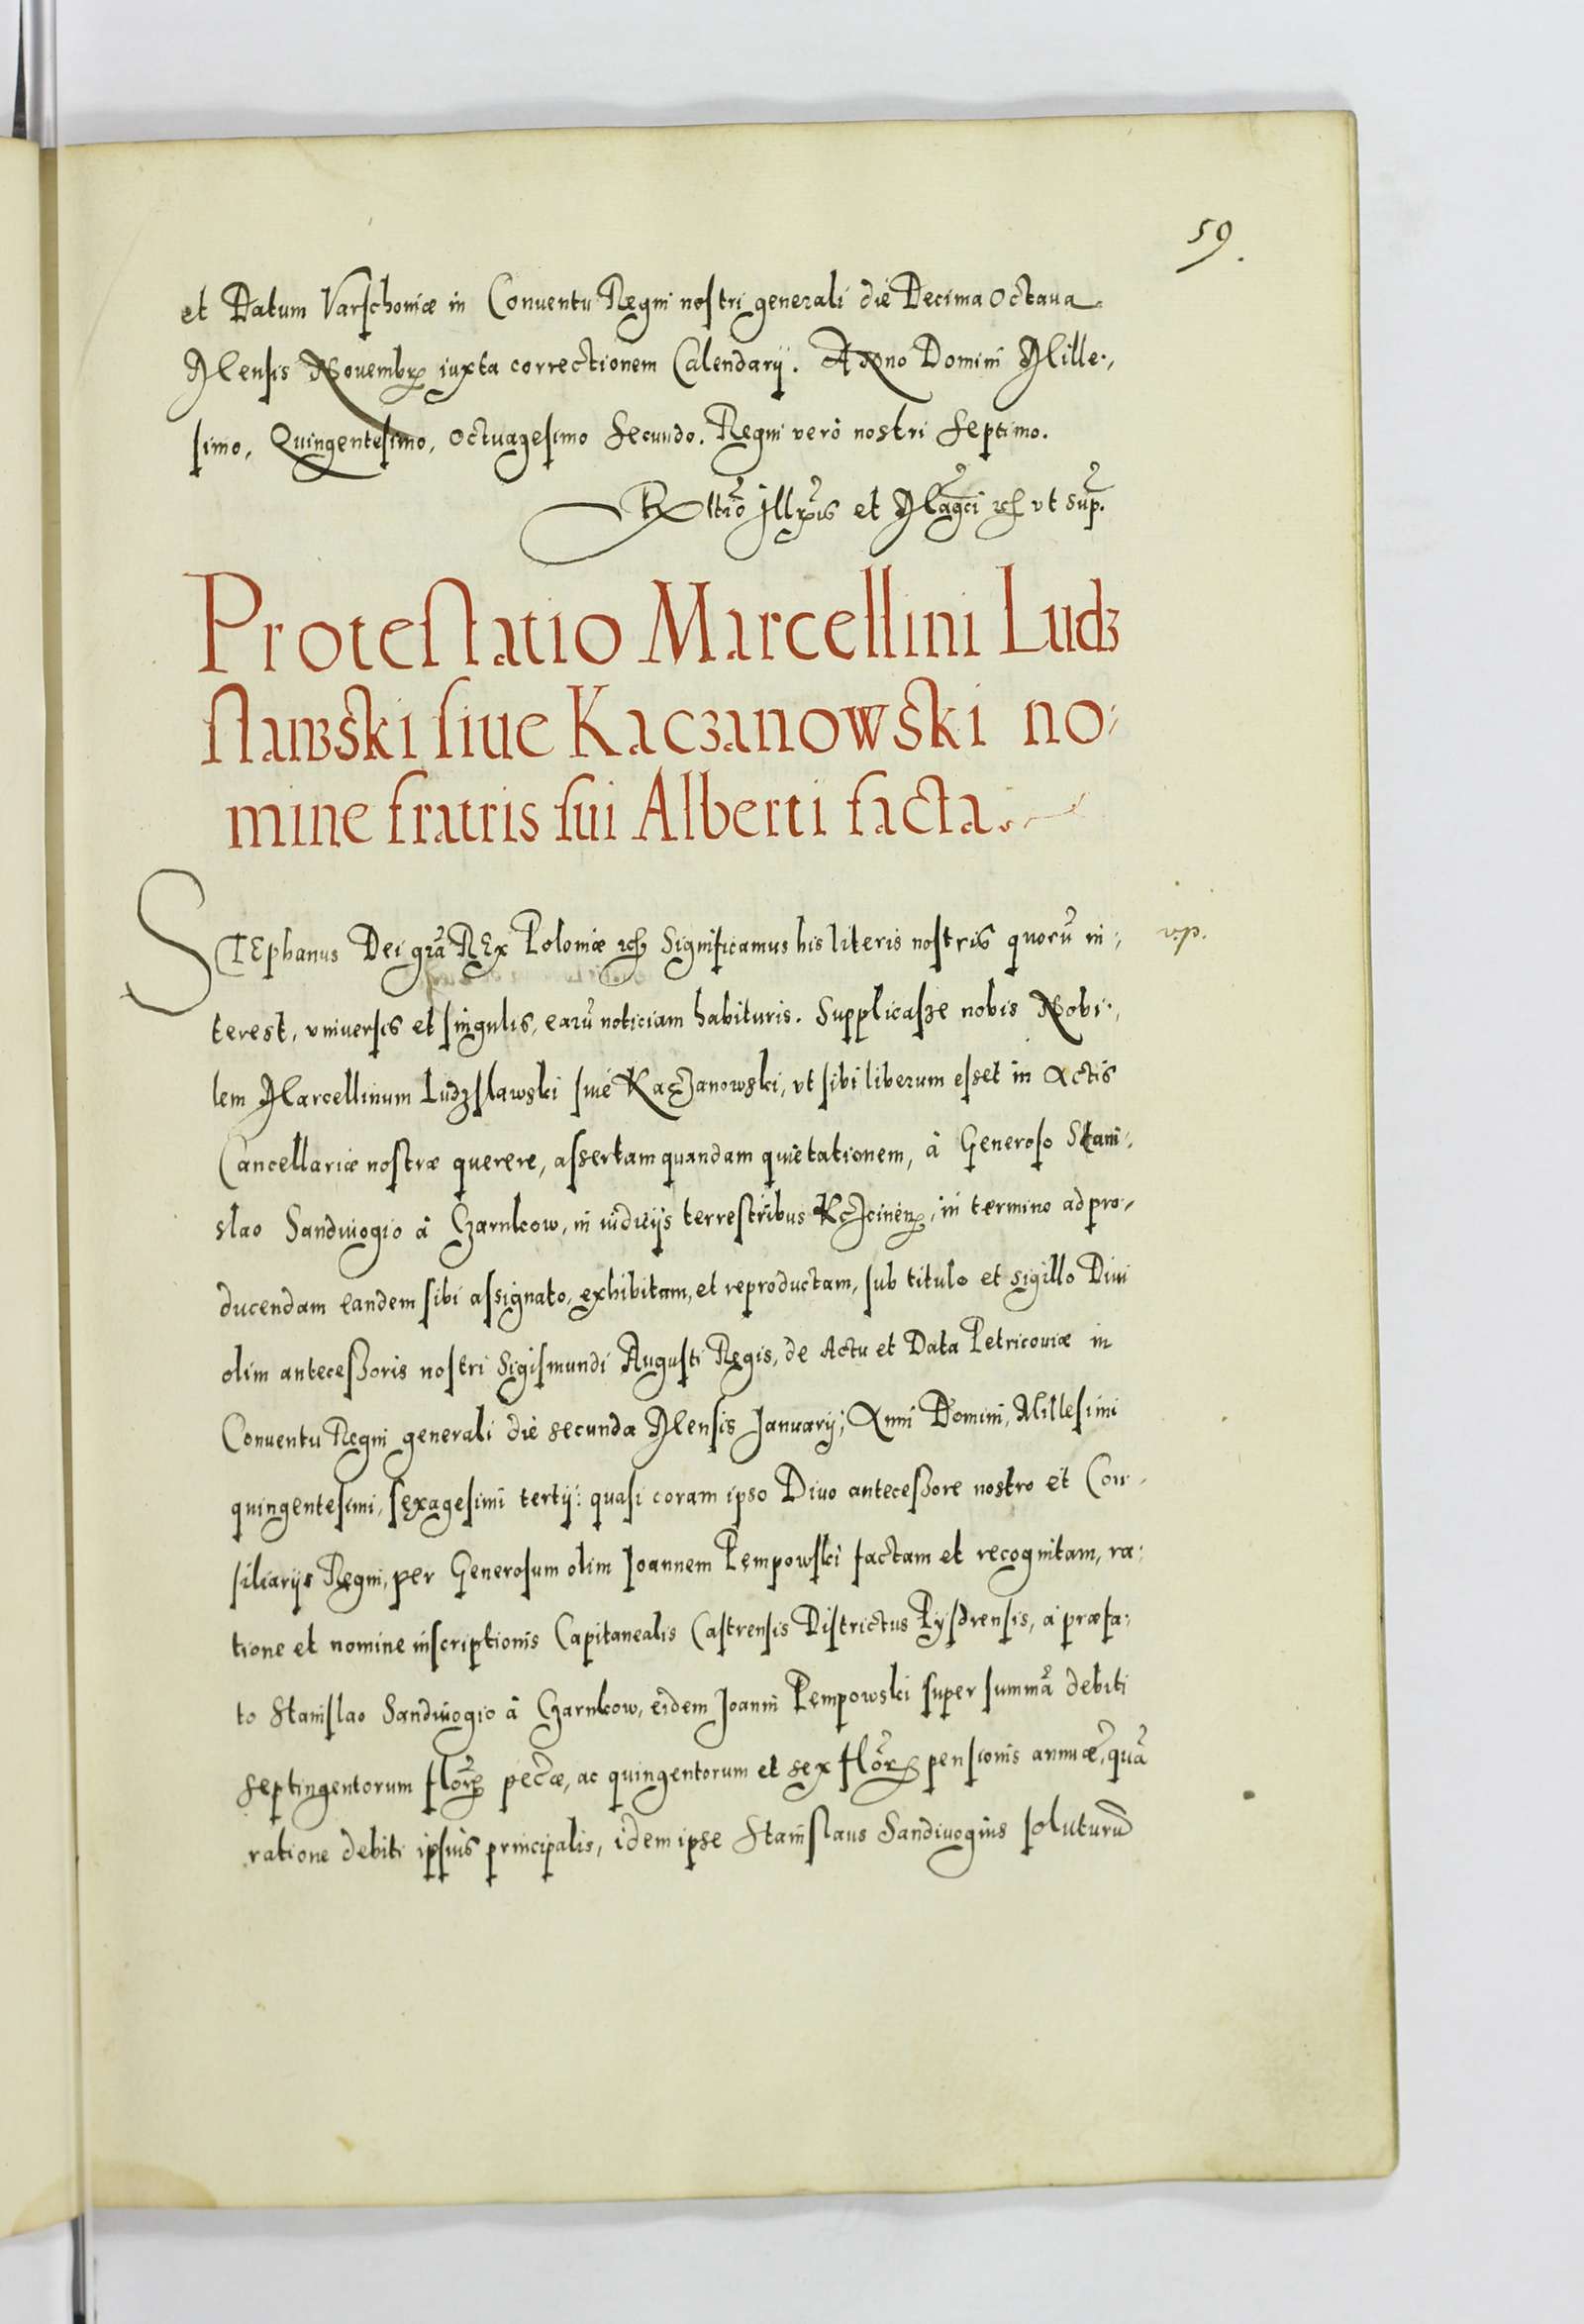 59.
et Datum Varschoviæ in Conventu Regni nostri generali die Decima Octava
Mensis Novembrꝭ iuxta correctionem Calendarij. Anno Domini Mille-,
simo, Quingentesimo, Octuagesimo Secundo. Regni verò nostri Septimo.
Rltio Illris et Magci ⁊c̃ vt sup.
Protestatio Marcellini Ludz
slawski siue Kaczanowski no:
mine fratris sui Alberti facta.
STEphanus Dei gra͂ REx Poloniæ ⁊c̃ Significamus his literis nostris quoru͂ in:,
v.p.
terest, vniuersis et singulis, earu͂ noticiam habituris. Supplicasse nobis Nobi:,
lem Marcellinum Ludzslawski siue Kaczanowski, vt sibi liberum esset in Actis
Cancellariæ nostræ querere, assertam quandam quietationem, à Generoso Stani:,
slao Sandiuogio à Czarnkow, in iudicijs terrestribus Kczcinenꝭ, in termino ad pro-
ducendam eandem sibi assignato, exhibitam, et reproductam, sub titulo et sigillo Diui
olim antecessoris nostri Sigismundi Augusti Regis, de Actu et Data Petricouiæ in
Conuentu Regni generali die secunda Mensis Januarij, Anni Domini, Millesimi
quingentesimi, sexagesimi tertij: quasi coram ipso Diuo antecessore nostro et Con-
siliarijs Regni, per Generosum olim Joannem Pempowski factam et recognitam, ra:
tione et nomine inscriptionis Capitanealis Castrensis Districtus Pysdrensis, à præfa:
to Stanislao Sandiuogio à Czarnkow, eidem Joanni Pempowski super summa͂ debiti
septingentorum florꝭ pec͂æ, ac quingentorum et sex florꝭ pensionis annuæ, qua͂
ratione debiti ipsius principalis, idem ipse Stanislaus Sandiuogius soluturu͂